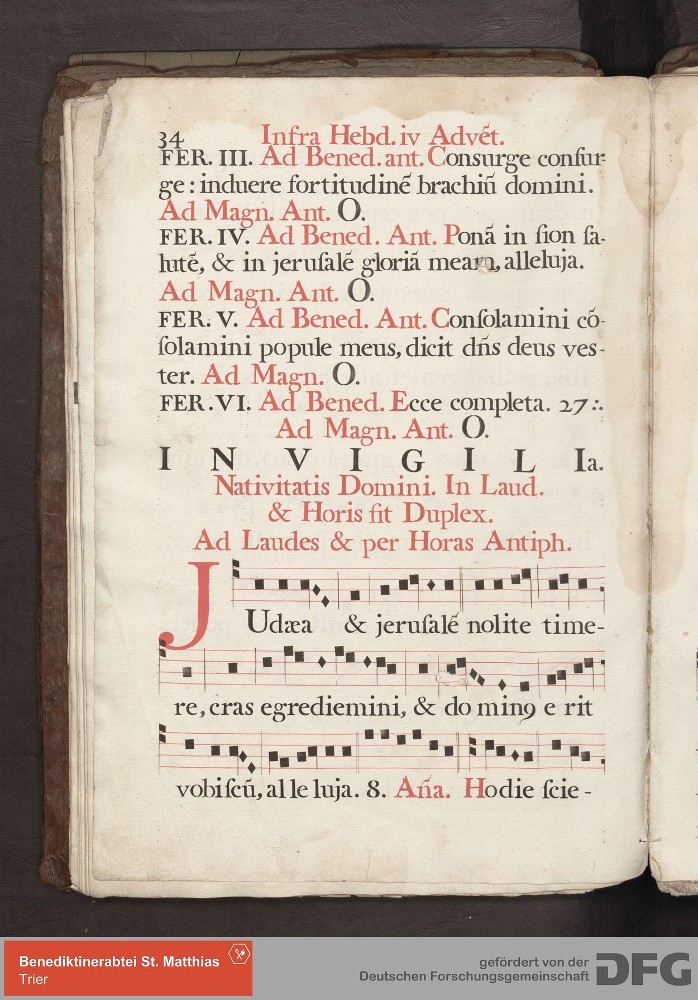 34 Infra Hebd. iv Advẽt.
FER. III. Ad Bened. ant. Consurge conſur-
ge : induere fortitudinẽ brachiũ domini.
Ad Magn. Ant. O.
FER. IV. Ad Bened. Ant. Ponã in ſion ſa-
lutẽ, & in jeruſalẽ gloriã meam, alleluja.
Ad Magn. Ant. O.
FER. V. Ad Bened. Ant. Conſolamini cõ-
ſolamini popule meus, dicit dñs deus ves-
ter. Ad Magn. O.
FER. VI. Ad Bened. Ecce completa. 27 :.
Ad Magn. Ant. O.
IN VIGILIa.
Nativitatis Domini. In Laud.
& Horis fit Duplex.
Ad Laudes & per Horas Antiph.
JUdæa & jeruſalẽ nolite time-
re, cras egrediemini, & do minꝯ e rit
vobiſcũ, al le luja. 8. Aña. Hodie ſcie-
Benediktinerabtei St. Matthias
Trier
gefördert von der
Deutschen Forschungsgemeinschaft
DFG